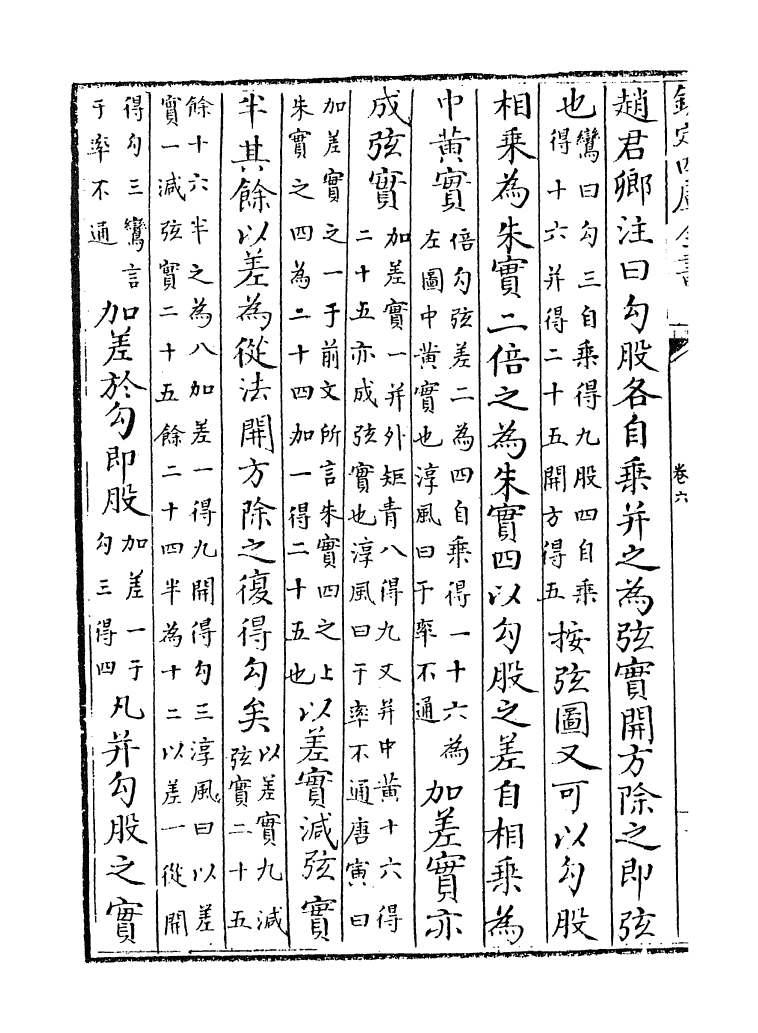 欽定四庫全書
卷六
趙君卿注曰勾股各自乗并之為弦實開方除之即弦
也
鸞曰勾三自乗得九股四自乗
得十六并得二十五開方得五
按弦圖又可以勾股
相乗為朱實二倍之為朱實四以勾股之差自相乗為
中黄實
倍勾弦差二為四自乗得一十六為
左圖中黄實也淳風曰于率不通
加差實亦
成弦實
加差實一并外矩青八得九又并中黄十六得
二十五亦成弦實也淳風曰于率不通唐寅曰
加差實之一于前文所言朱實四之上
朱實之四為二十四加一得二十五也
以差實減弦實
半其餘以差為從法開方除之復得勾矣
以差實九減
弦實二十五
餘十六半之為八加差一得九開得勾三淳風曰以差
實一減弦實二十五餘二十四半為十二以差一從開
得勾三鸞言
于率不通
加差於勾即股
加差一于
勾三得四
凡并勾股之實